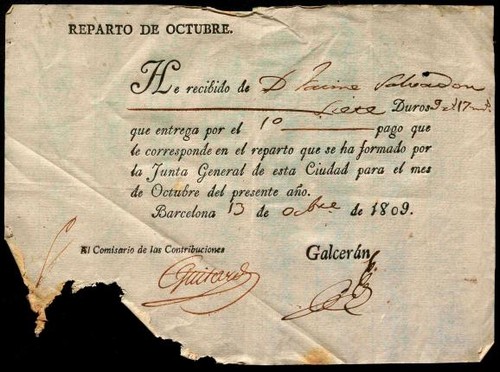 REPARTO DE OCTUBRE.
He recibido de D Jaime Salvador
Siete Duros 9 17
que entrega por el 1º pago que
le corresponde en el reparto que se ha formado por
la Junta General de esta Ciudad para el mes
de Octubre del presente año.
Barcelona 13 de octbre de 1809.
El Comisario de las Contribuciones Galcerán
Guitard